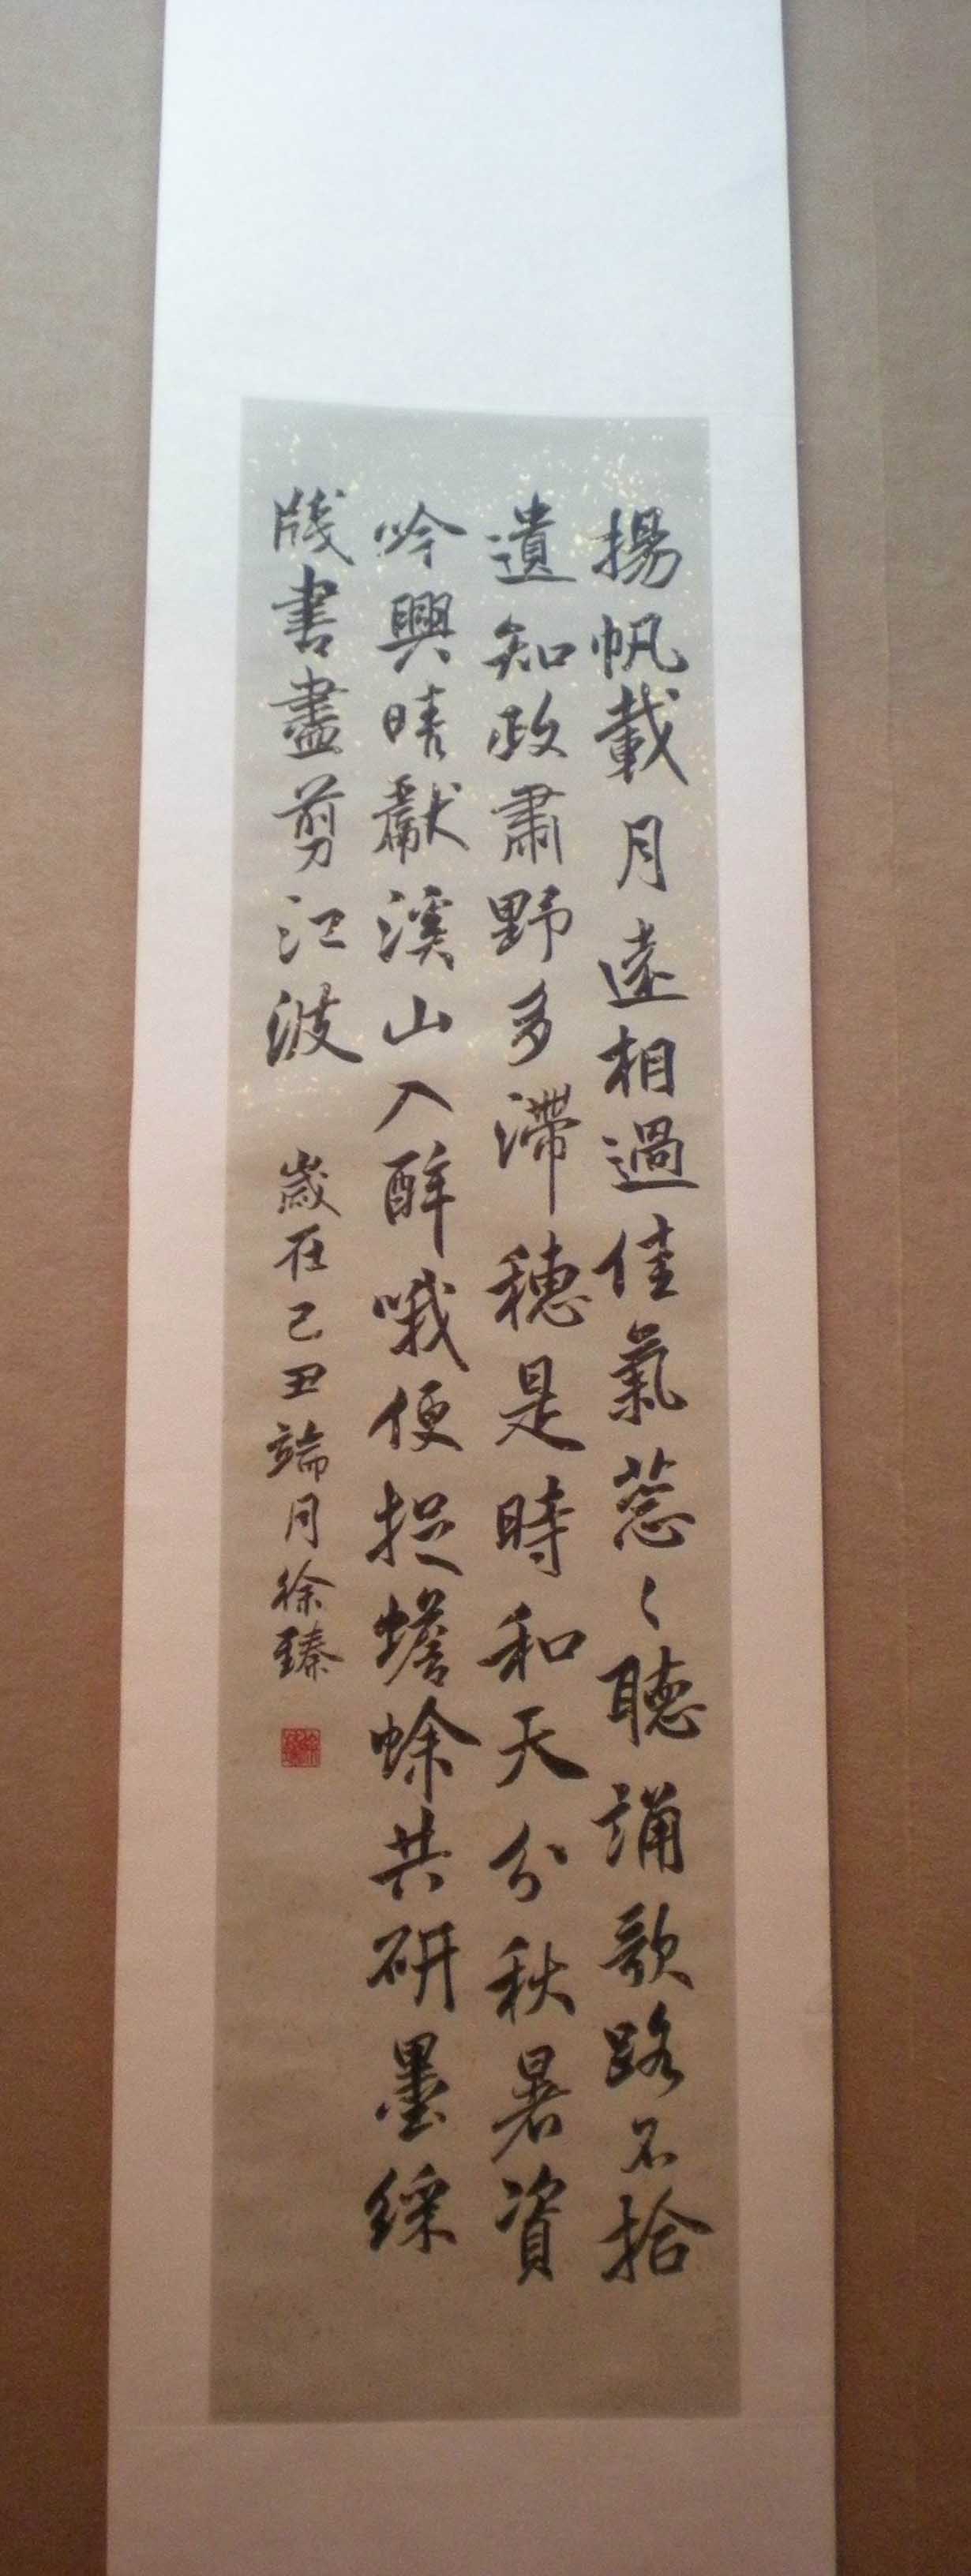 揚帆載月遠相過佳氣蔥〻聽誦歌路不拾
遺知政肅野多滯穗是時和天分秋暑資
吟興晴獻溪山入醉哦便捉蟾蜍共研墨綵
牋書盡剪江波
歲在己丑端月徐臻